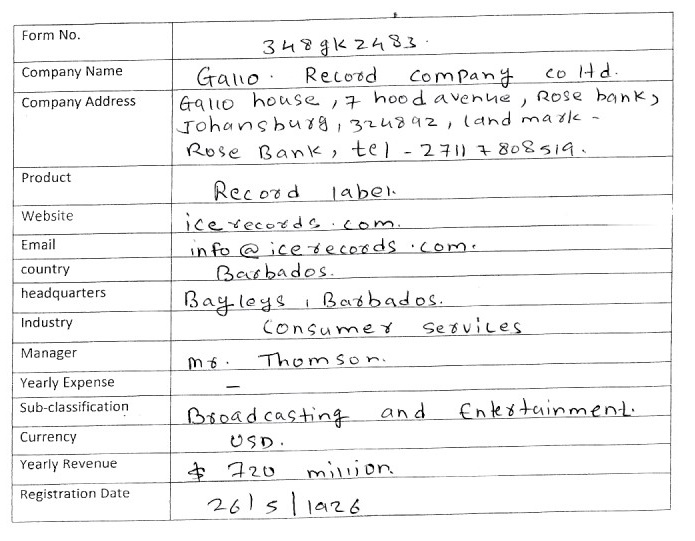 Form No. 348gk2483.
Company Name Gallo. Record company co ltd.
Company Address Gallo house, 7 hood avenue, Rose bank,
Johansburg, 324892, land mark -
Rose Bank, tel - 27117808519.
Product Record label.
Website icerecords.com.
Email info@icerecords.com.
country Barbados.
headquarters Bayleys, Barbados.
Industry Consumer Services
Manager mr. Thomson.
Yearly Expense –
Sub-classification Broadcasting and Entertainment.
Currency USD.
Yearly Revenue $ 720 million
Registration Date 26/5/1926